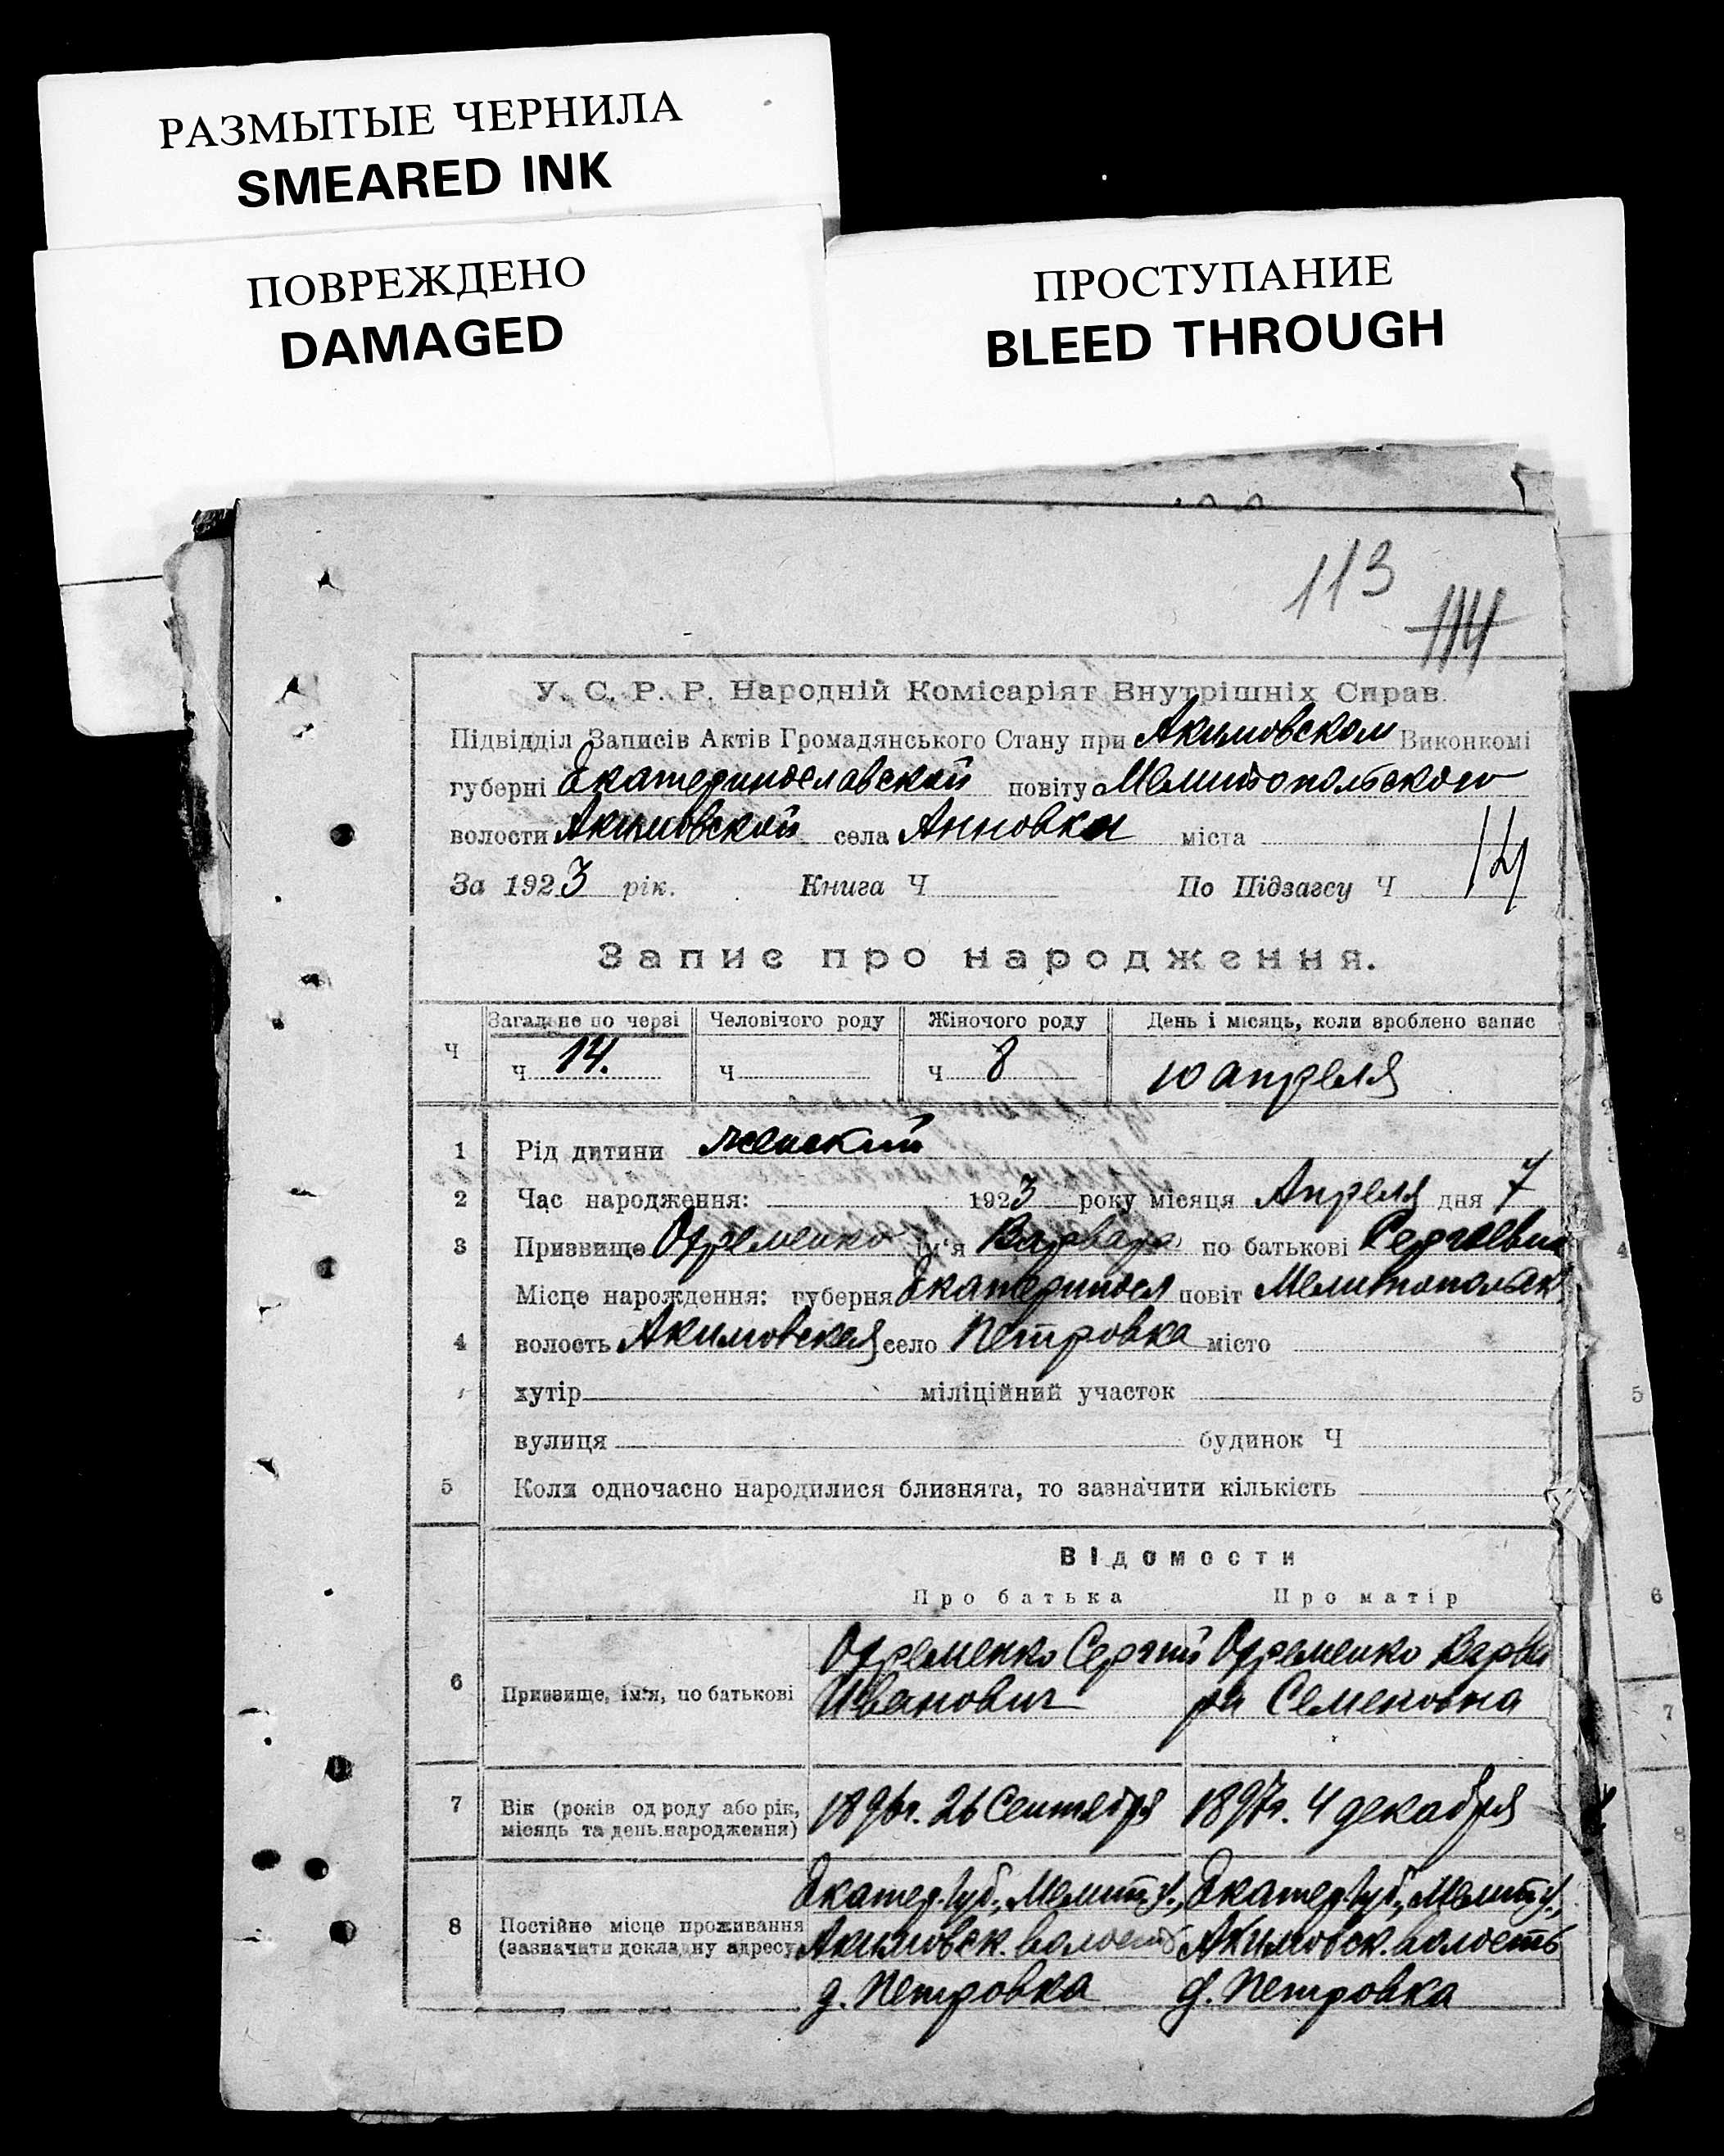 РАЗМЫТЫЕ ЧЕРНИЛА
SMEARED INK
ПОВРЕЖДЕНО
DAMAGED
ПРОСТУПАНИЕ
BLEED THROUGH
113
114
У. С. Р. Р. Народній Комісаріят Внутрішніх Справ.
Підвідділ Записів Актів Громадянського Стану при Акимовском Виконкомі
губерні Екатеринославской повіту Мелитопольского
волости Акимовской села Анновки міста
За 1923 рік. Книга Ч По Підзагсу Ч 14
Запис про народження.
Ч Загальне по черзі Человічого роду Жіночого роду День і місяць, коли зроблено запис
Ч 14. Ч Ч 8 10 апреля
1 Рід дитини женский
2 Час народження: 1923 року місяця Апреля дня 7
3 Призвище Ефременко ім'я Варвара по батькові Сергеевна
Місце народження: губерня Екатериносл повіт Мелитопольск
4 волость Акимовская село Петровка місто
хутір міліційний участок
вулиця будинок Ч
5 Коли одночасно народилися близнята, то зазначити кількість
Відомости
Про батька Про матір
Ефременко Сергий Ефременко Варва
6 Призвище, ім'я, по батькові Иванович ра Семеновна
7 Вік (років од роду або рік, 1896г. 26 Сентября 1897г. 4 декабря
місяць та день народження)
Екатер. губ., Мелит. у., Екатер. губ., Мелит. у.,
8 Постійне місце проживання Акимовск. волость Акимовск. волость
(зазначити докладну адресу)
д. Петровка д. Петровка
4
5
6
7
8